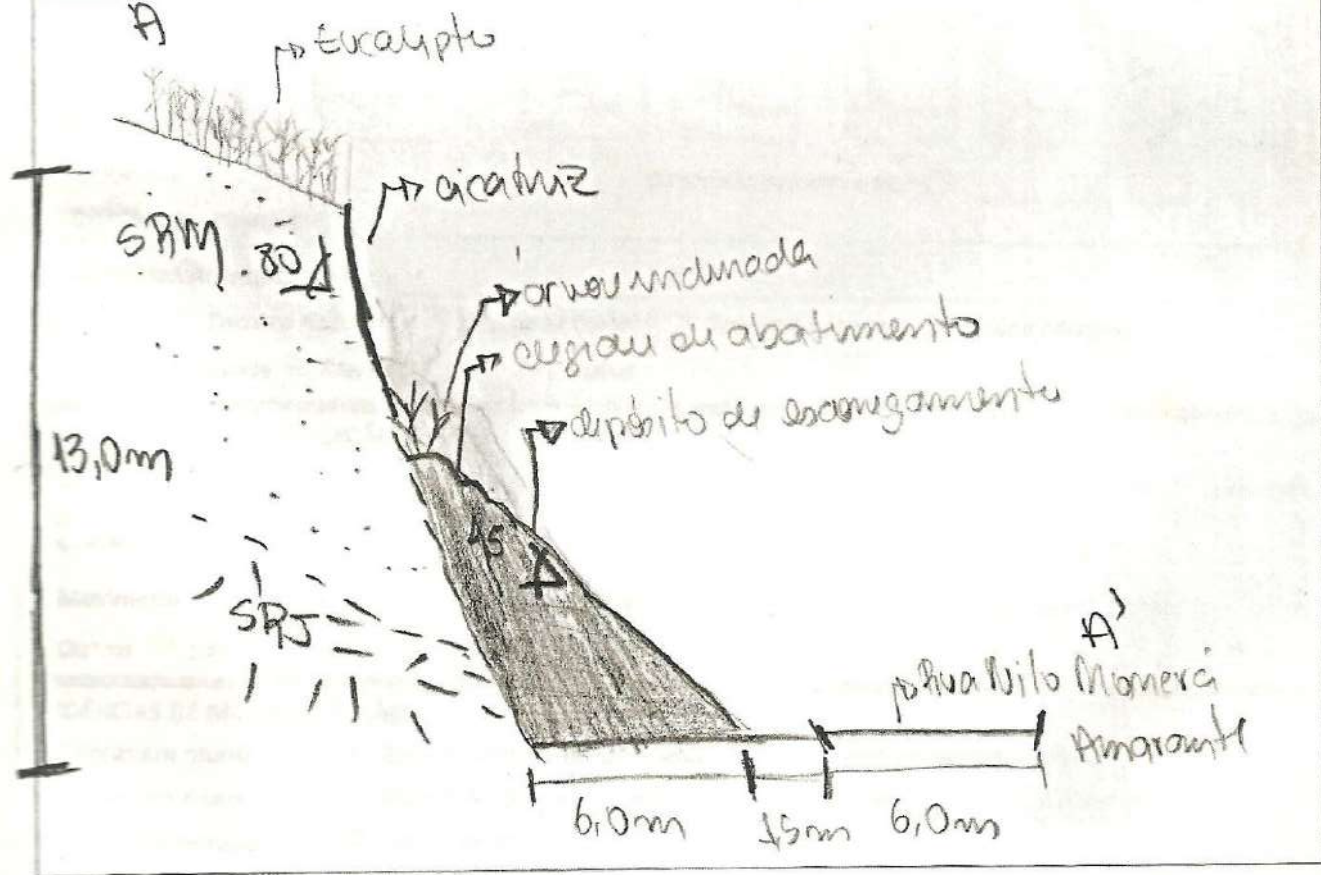 A
Eucalipto
cicatriz
SRM
80
árvore inclinada
degrau de abatimento
depósito de escorregamento
13,0m
45
SRJ
A'
Rua Nilo
Amarante
6,0m
1,5m
6,0m